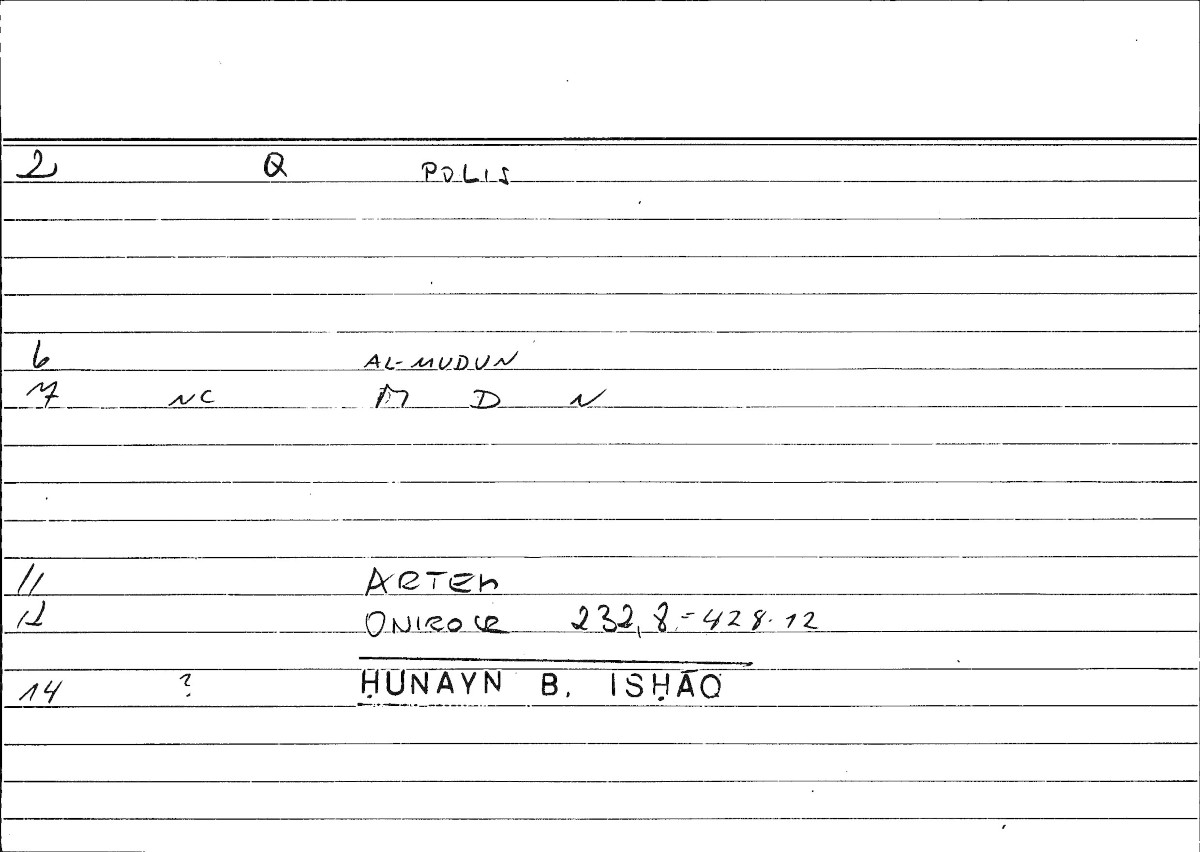 2 Q POLIS
6 AL-MUDUN
7 NC M D N
11 ARTEM
12 ONIROCR 232,8 = 428.12
14 ? ḤUNAYN B. ISḤĀQ